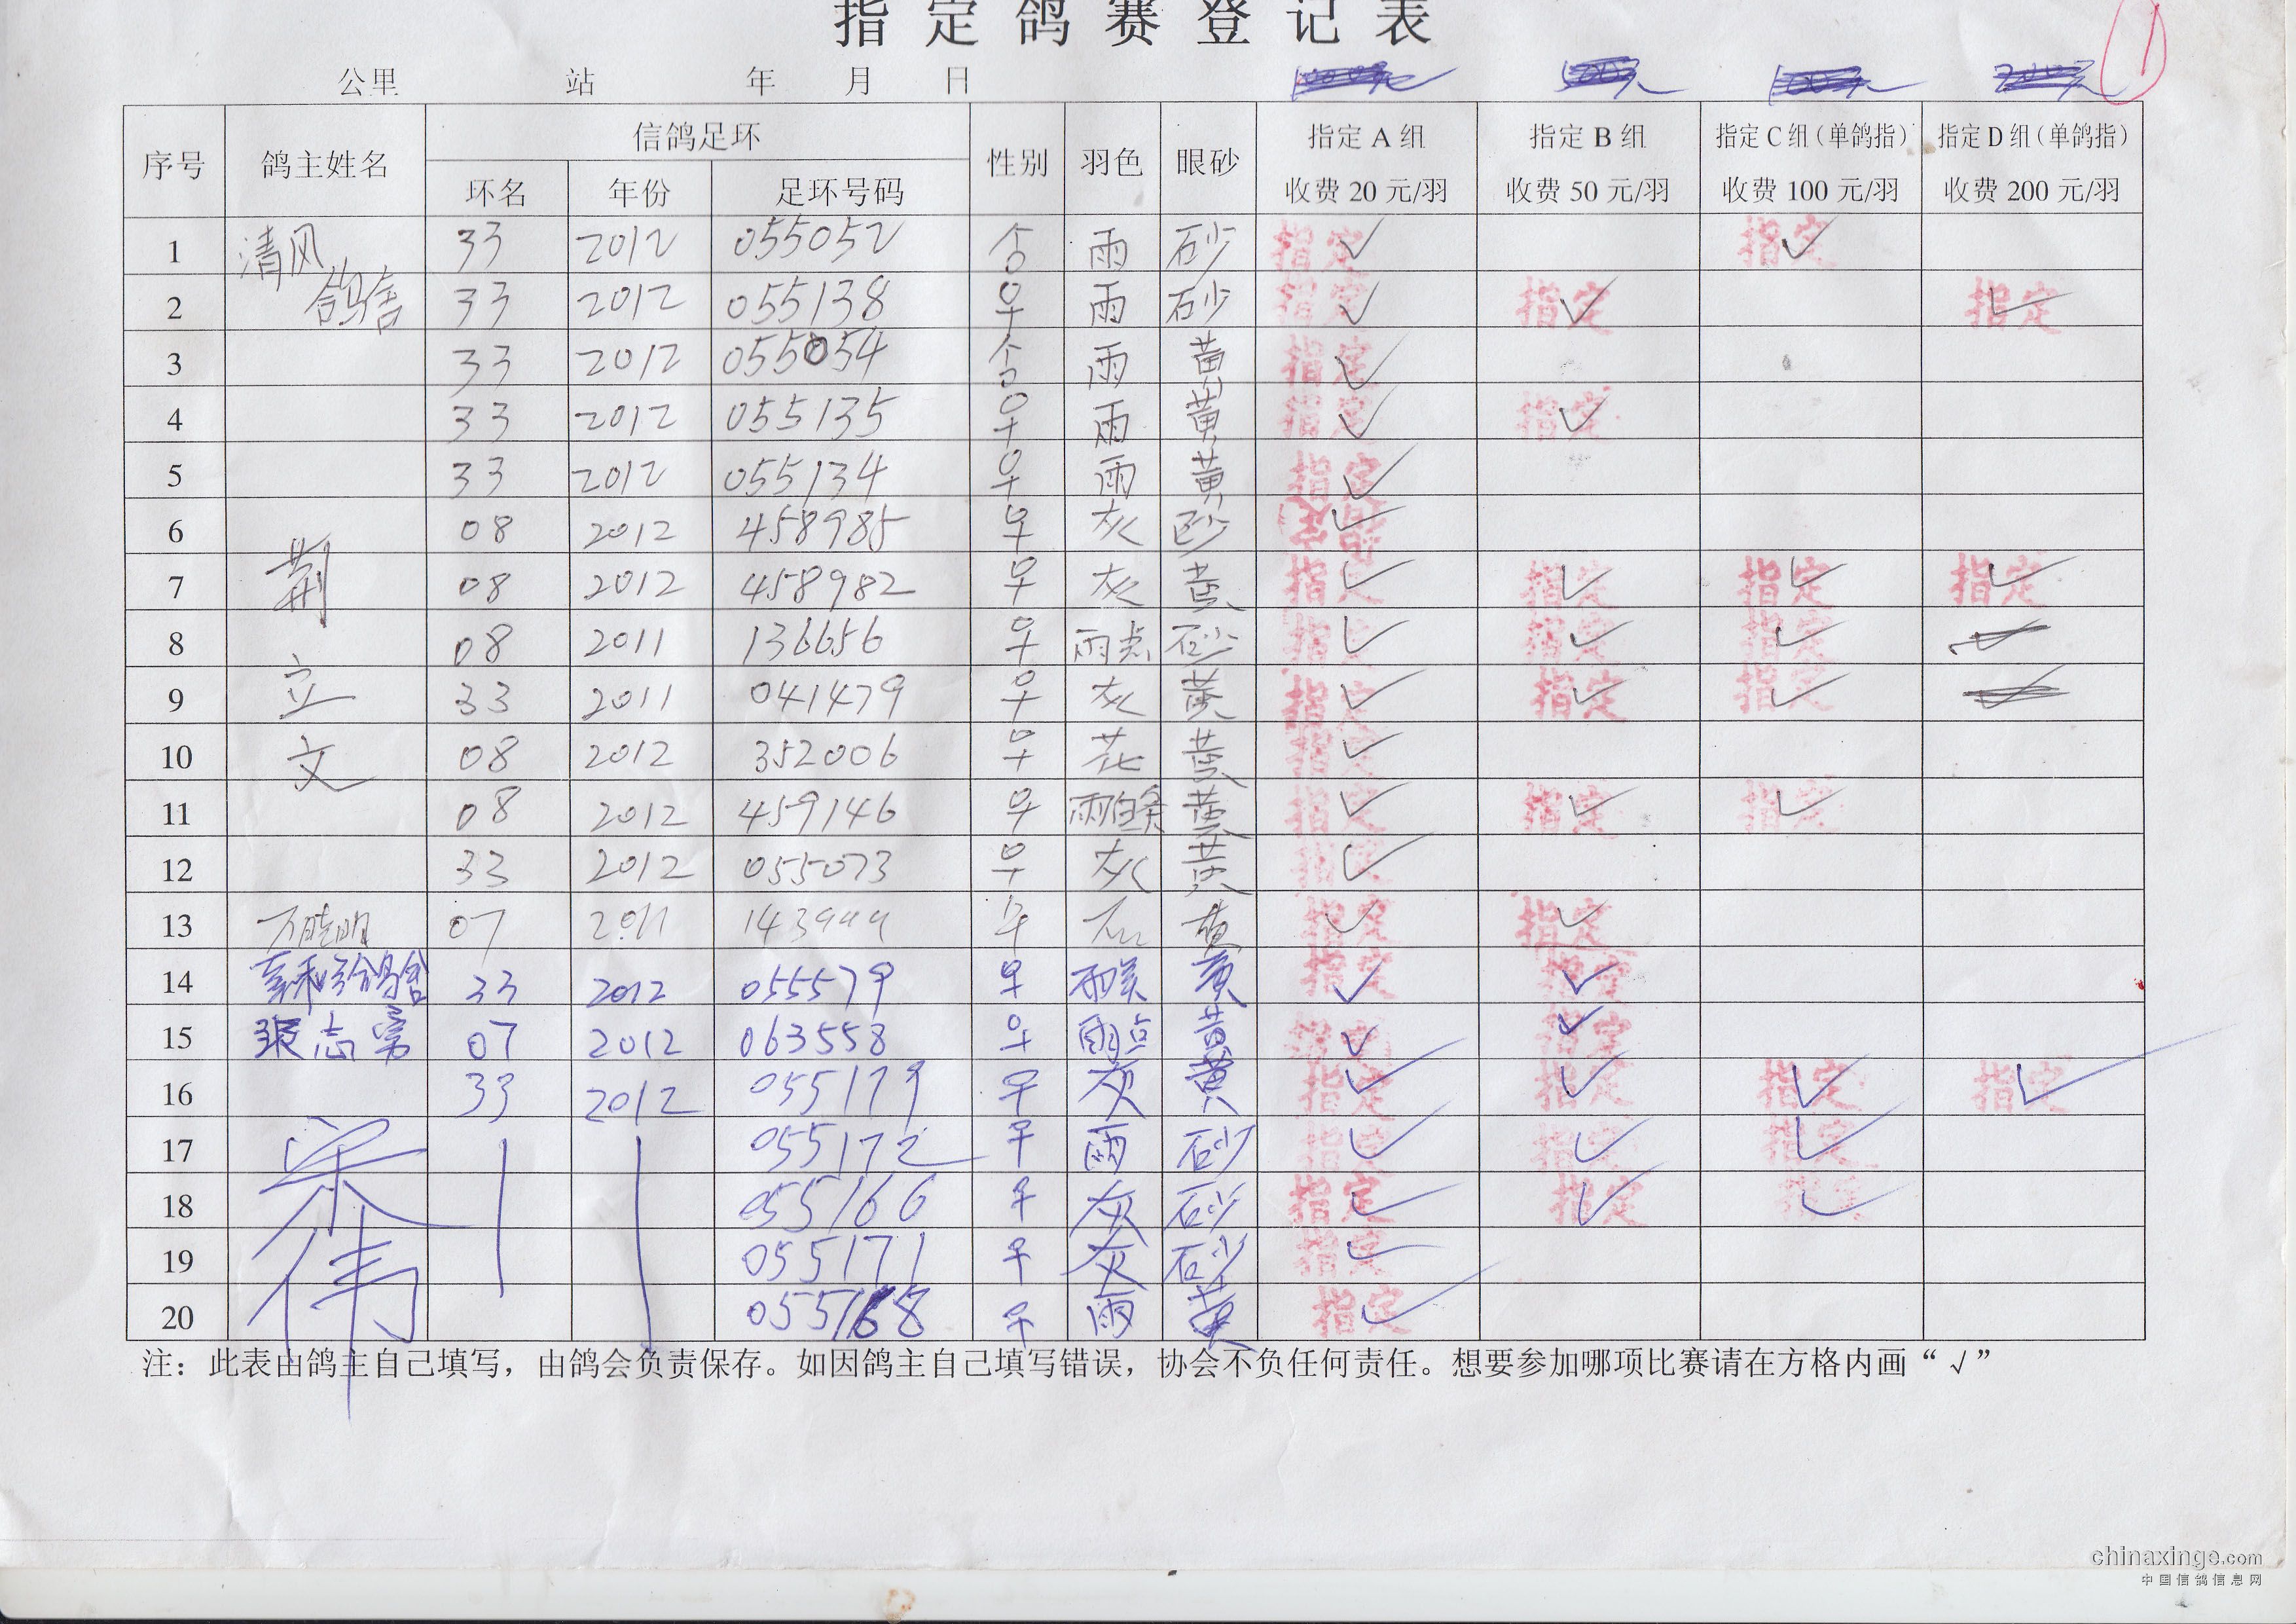 指定鸽赛登记表
公里 站 年 月 日
序号 鸽主姓名 信鸽足环 性别 羽色 眼砂 指定A组 指定B组 指定C组(单鸽指) 指定D组(单鸽指)
环名 年份 足环号码 收费20元/羽 收费50元/羽 收费100元/羽 收费200元/羽
1 清风 33 2012 055052 雨 砂 指定 ✓ 指定 ✓
2 鸽舍 33 2012 055138 ♀ 雨 砂 指定 ✓ 指定 ✓ 指定 ✓
3 33 2012 055054 雨 黄 指定 ✓
4 33 2012 055135 ♀ 雨 黄 指定 ✓ 指定 ✓
5 33 2012 055134 ♀ 雨 黄 指定 ✓
6 08 2012 458985 ♀ 灰 砂 ✓
7 荆 08 2012 458982 ♀ 灰 黄 指定 ✓ 指定 ✓ 指定 ✓ 指定 ✓
8 08 2011 136656 ♀ 雨点 砂 指定 ✓ 指定 ✓ 指定 ✓
9 立 33 2011 041479 ♀ 灰 黄 指定 ✓ 指定 ✓ 指定 ✓
10 文 08 2012 352006 ♀ 花 黄 指定 ✓
11 08 2012 459146 ♀ 雨白条 黄 指定 ✓ 指定 ✓ 指定 ✓
12 33 2012 055073 ♀ 灰 黄 指定 ✓
13 07 2011 ♀ 黄 指定 ✓ 指定 ✓
14 33 2012 055579 ♀ 黄 指定 ✓ 指定 ✓
15 张志 07 2012 063558 ♀ 雨点 黄 指定 ✓ 指定 ✓
16 33 2012 055179 ♀ 灰 黄 指定 ✓ 指定 ✓ 指定 ✓ 指定 ✓
17 宋 055172 ♀ 雨 砂 指定 ✓ 指定 ✓ 指定 ✓
18 055166 ♀ 灰 砂 指定 ✓ 指定 ✓ 指定 ✓
19 伟 055171 ♀ 灰 砂 指定 ✓
20 055168 ♀ 雨 黄 指定 ✓
注：此表由鸽主自己填写，由鸽会负责保存。如因鸽主自己填写错误，协会不负任何责任。想要参加哪项比赛请在方格内画“√”
chinaxinge.com
中国信鸽信息网